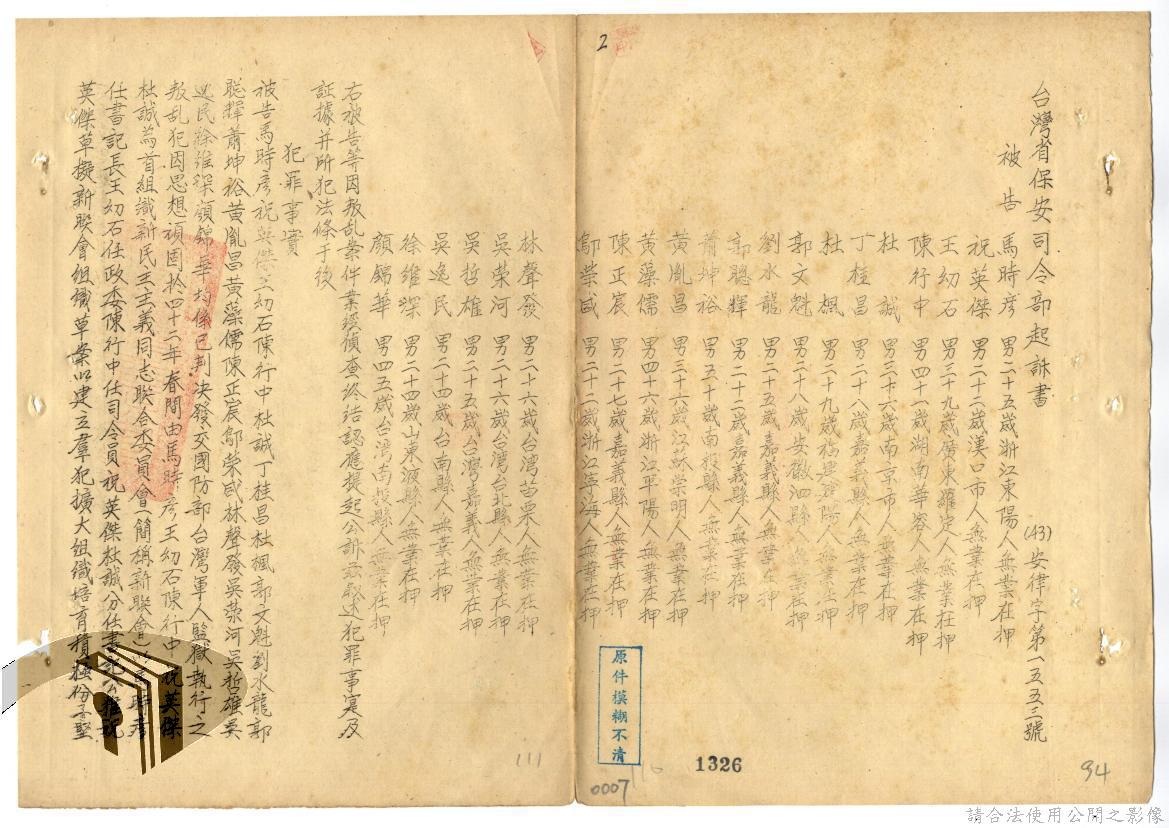 台灣省保安司令部起訴書
(43)安律字第一五五三號
被告 馬時彦 男二十五歲浙江東陽人無業在押
祝英傑 男二十二歲漢口市人無業在押
王幼石 男三十九歲廣東羅定人無業在押
陳行中 男四十一歲湖南華容人無業在押
杜誠 男三十六歲南京市人無業在押
丁桂昌 男二十八歲嘉義縣人無業在押
杜楓 男二十九歲福興陽人無業在押
郭文魁 男二十八歲安徽泗縣人無業在押
劉水龍 男二十五歲嘉義縣人無業在押
郭聰輝 男二十二歲嘉義縣人無業在押
蕭坤裕 男五十歲南投縣人無業在押
黃胤昌 男三十六歲江蘇崇明人無業在押
黃藻儒 男四十六歲浙江平陽人無業在押
陳正宸 男二十七歲嘉義縣人無業在押
鄔榮盛 男二十二歲浙江寧海人無業在押
林聲發 男二十六歲台灣苗栗人無業在押
吳榮河 男二十六歲台灣台北縣人無業在押
吳哲雄 男二十五歲台灣嘉義人無業在押
吳逸民 男二十四歲台南縣人無業在押
徐維琛 男二十四歲山東掖縣人無業在押
顏錦華 男四五歲台灣南投縣人無業在押
右被告等因叛乱案件業經偵查終結認應提起公訴茲叙述犯罪事実及
証據并所犯法條于後
犯罪事實
被告馬時彦祝英傑王幼石陳行中杜誠丁桂昌杜楓郭文魁劉水龍郭
聡輝蕭坤裕黃胤昌黃藻儒陳正宸鄔榮盛林聲發吳榮河吳哲雄吳
逸民徐維琛顏錦華均係已判决發交國防部台灣軍人監獄執行之
叛乱犯因思想頑固於四十二年春間由馬時彦王幼石陳行中祝英傑
杜誠為首組織新民主主義同志联合委員會(簡稱新联會)馬時彦
任書記長王幼石任政委陳行中任司令員祝英傑杜誠分任書記公推祝
英傑草擬新联會組織草案以建立羣犯擴大組織培育積極份子堅
2
原件模糊不清
1326
0007
116
94
111
請合法使用公開之影像